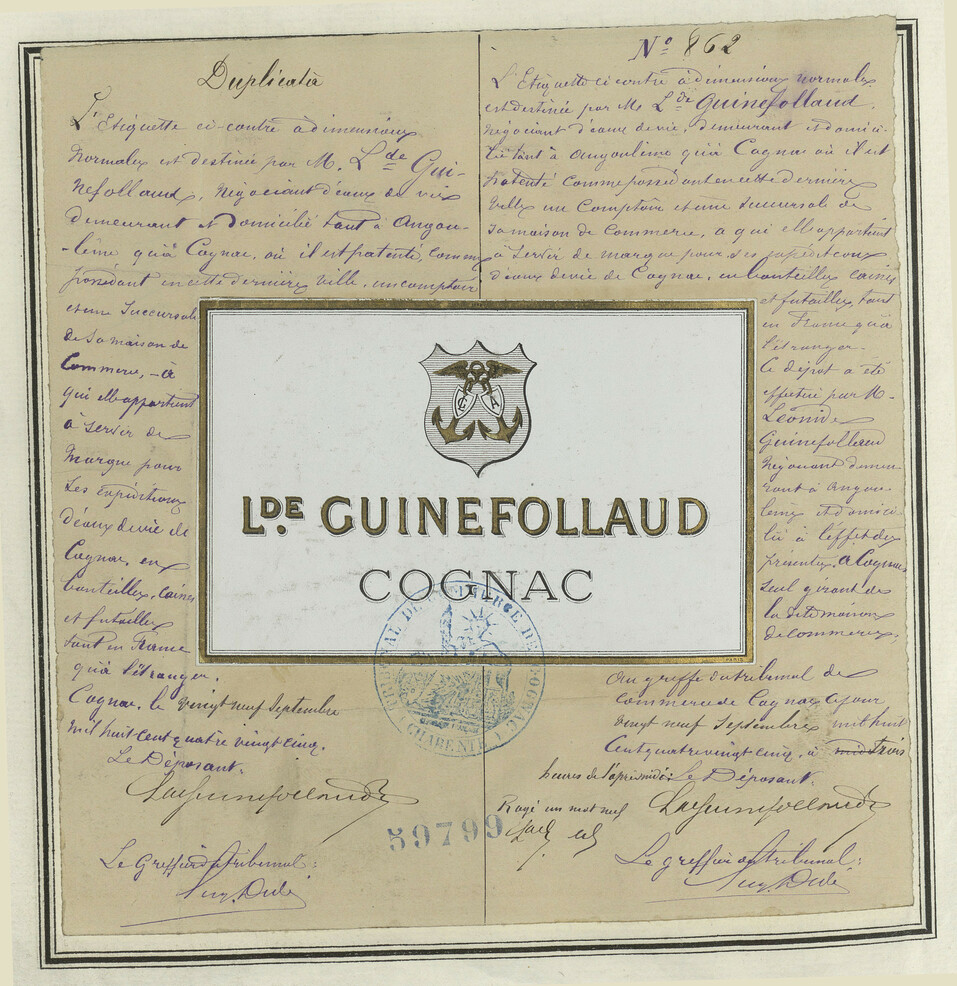 Duplicata
L'Etiquette ci-contre à dimensions
normales est destinée par M. Lde Gui-
nefollaud, négociant d'eaux de vie
demeurant et domicilié tant à Angou-
-lême qu'à Cognac, où il est patenté, comme
possédant en cette dernière ville, un comptoir
et une Succursale
de sa maison de
Commerce, - à
qui elle appartient
à servir de
marque pour
ses expéditions
d'eaux de vie de
Cognac, en
bouteilles, caisses
et futailles
tant en France
qu'à l'étranger.
Cognac, le vingt neuf Septembre
mil huit cent quatre vingt cinq.
Le Déposant.
Lde Guinefollaud
Le Greffier du tribunal:
No 862
L'Etiquette ci contre à dimensions normales
est destinée par M. Lde Guinefollaud,
négociant d'eaux de vie, demeurant et domici-
lié tant à Angoulême qu'à Cognac où il est
patenté comme possédant en cette dernière
ville un Comptoir et une Succursale de
sa maison de Commerce, à qui elle appartient
à servir de marque pour ses expéditions
d'eaux de vie de Cognac, en bouteilles caisses
et futailles tant
en France qu'à
l'étranger.
Ce dépôt a été
effectué par M.
Léonide
Guinefollaud
négociant demeu-
rant à Angou-
lême et domici-
lié à l'effet des
présentes, à Cognac
seul gérant de
la dite maison
de commerce.
Au greffe du tribunal de
commerce de Cognac ce jour
vingt neuf Septembre mil huit
cent quatre vingt cinq, à trois
heures de l'après midi: Le Déposant.
Rayé un mot nul
Lde Guinefollaud
Le greffier du tribunal:
C A
LDE. GUINEFOLLAUD
COGNAC
PARIS
TRIBUNAL DE COMMERCE DE COGNAC (CHARENTE)
59799